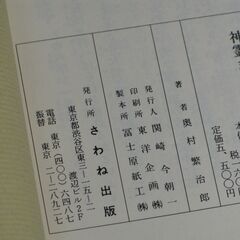 神霊
定価五、五〇〇円
著者 奥村繁治郎
発行人 関崎今朝一
印刷所 東洋企画㈱
製本所 冨士原紙工㈱
発行所 さわね出版
東京都渋谷区東三ー一五ー二
渡辺ビル2F
電話 東京(四〇〇)六四八七
振替 東京 二ー二八九二七